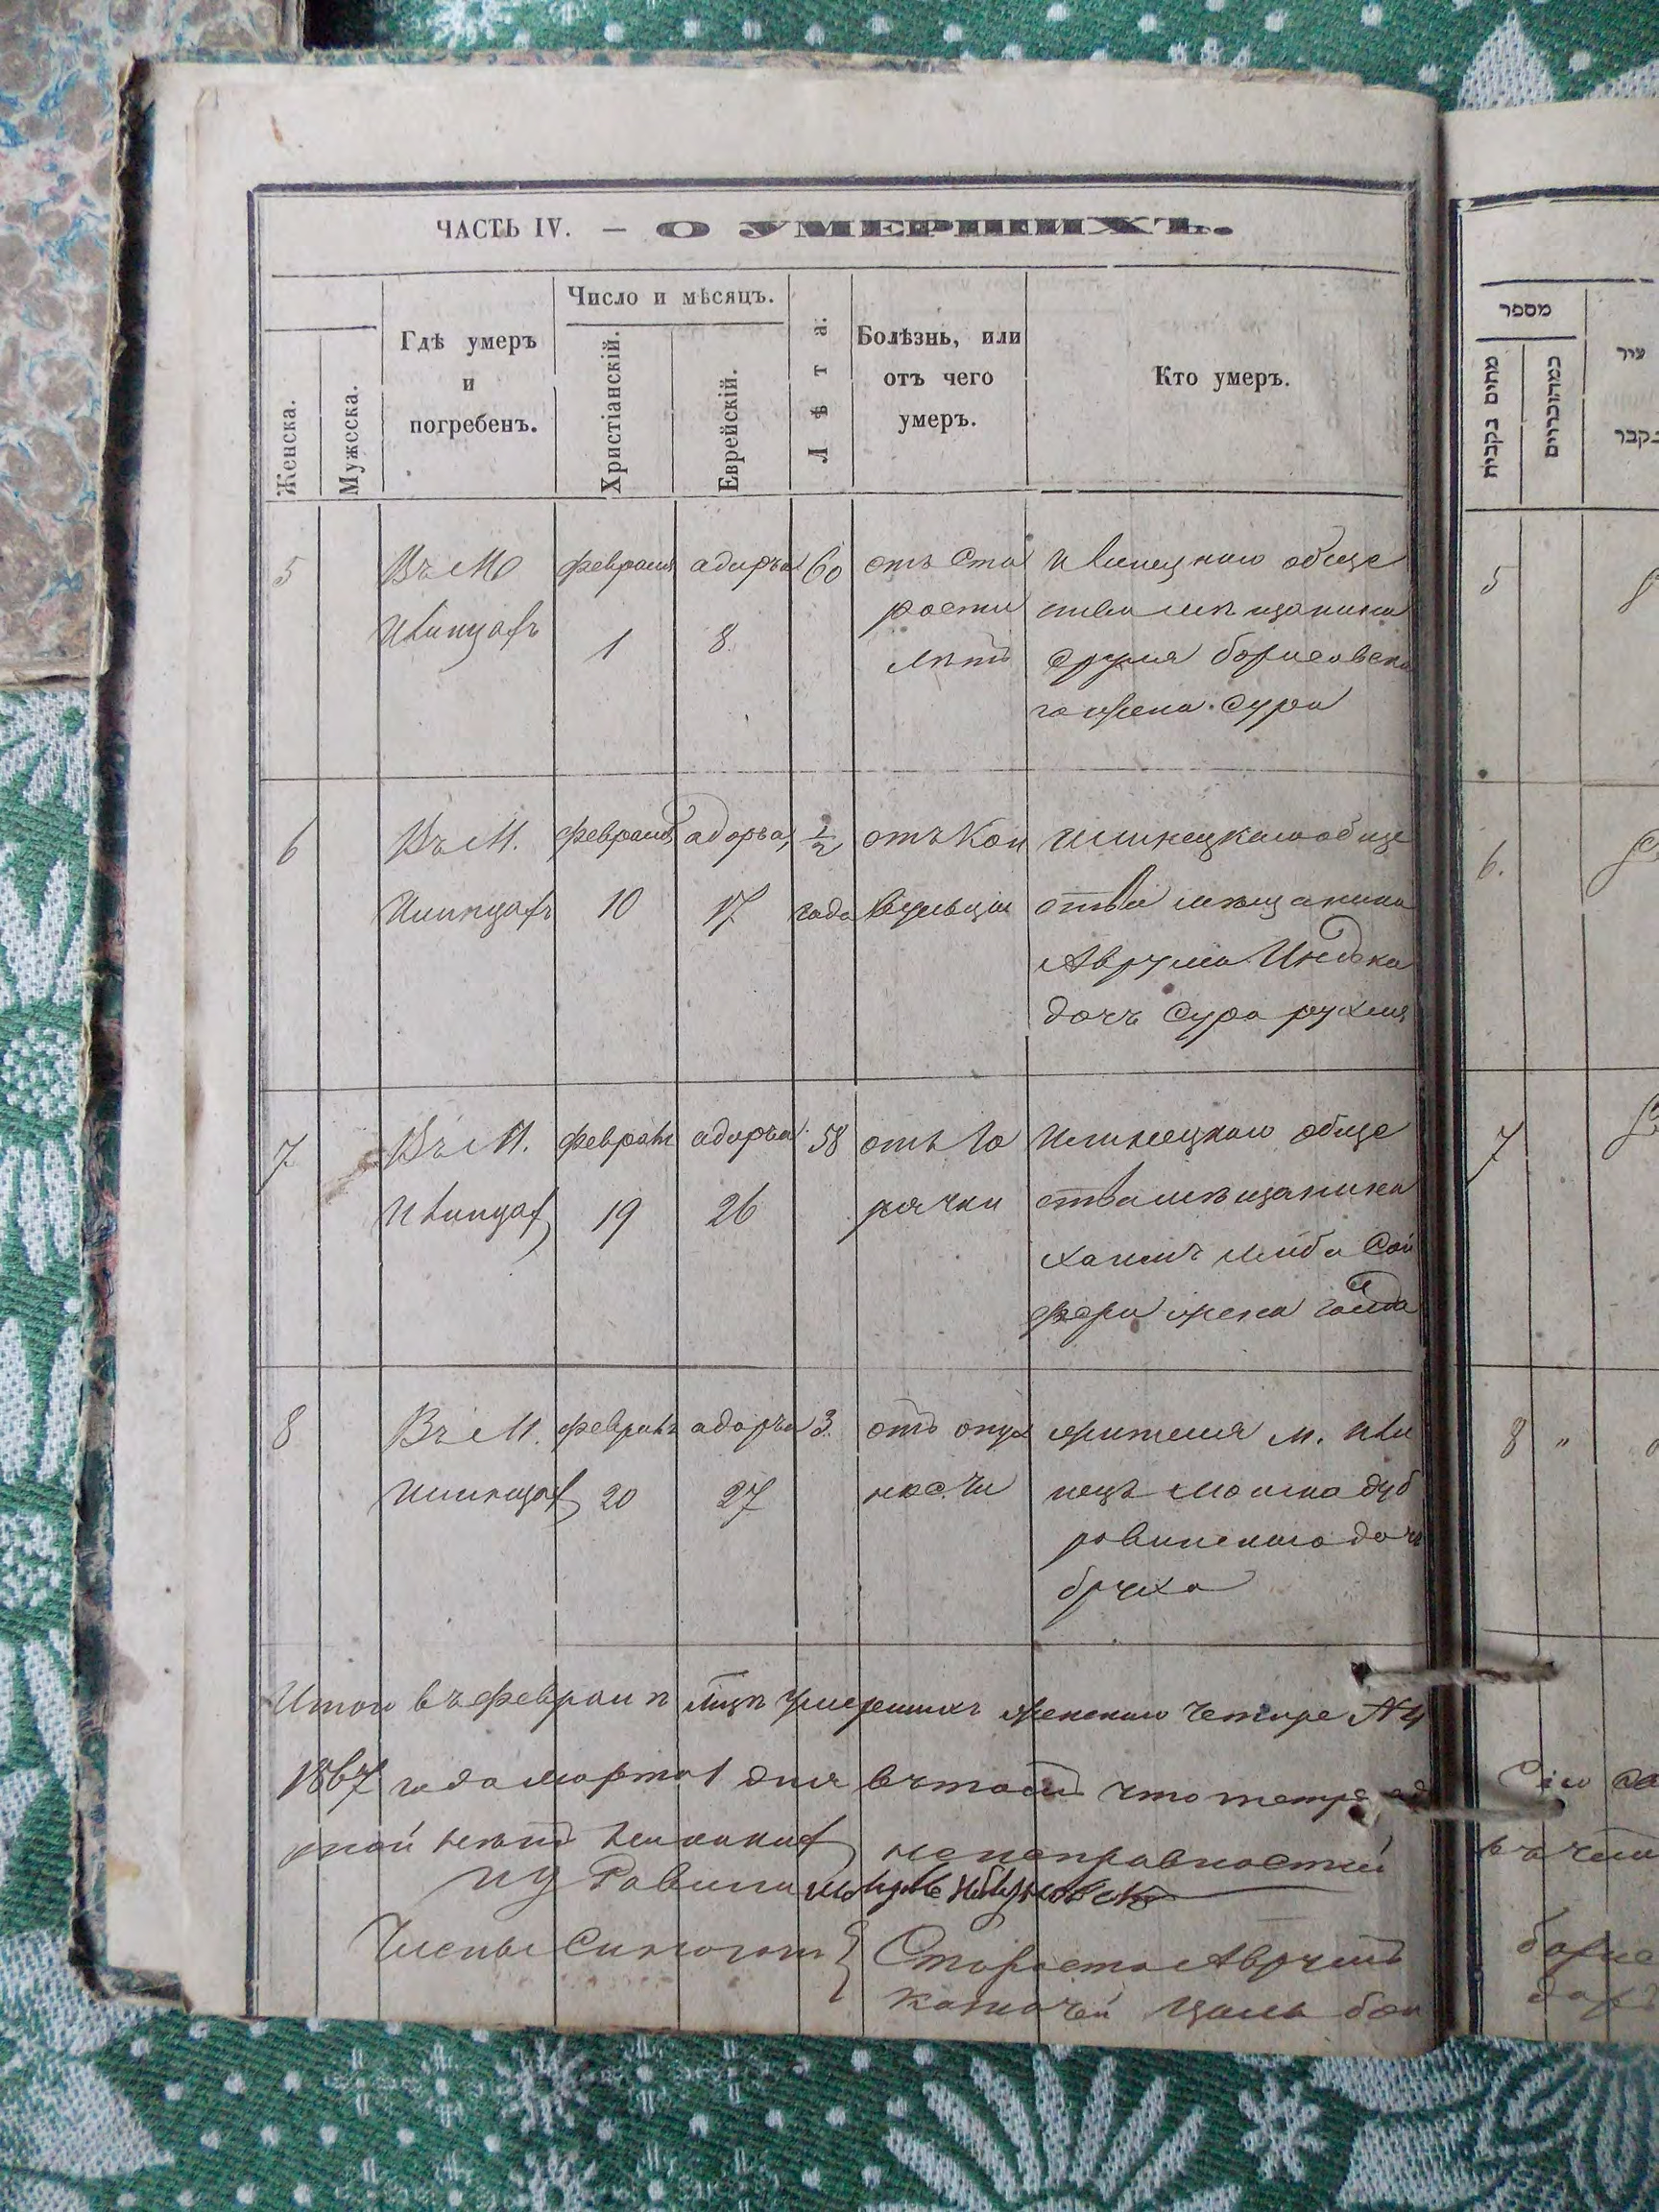 ЧАСТЬ IV. — О УМЕРШИХЪ.
Женска.
Мужеска.
Гдѣ умеръ
и
погребенъ.
Число и мѣсяцъ.
Христіанскій.
Еврейскій.
Лѣта.
Болѣзнь, или
отъ чего
умеръ.
Кто умеръ.
5
Въ М
Илинцахъ
февраля
1
адаръа
8
60
отъ Ста
рости
лѣтъ
Илинецкаго обще
ства мѣщанина
Сруля борисовска
го жена Сура
6
Въ М.
Илинцахъ
февраля
10
адаръа
17
1/2
года
отъ Кон
вульціи
Илинецкаго обще
ства мѣщанина
Аврума Индъка
дочъ Сура рухля
7
Въ М.
Илинцах
февраля
19
адаръа
26
58
отъ Го
рячки
Илинецкаго обще
ства мѣщанина
хаимъ лейба Сой
фера жена
8
Въ М.
Илинцах
февраля
20
адаръа
27
3.
отъ опух
ности
жителя м. Или
нецъ Мошка дуб
ровинскаго дочъ
бруха
Итого въ февралѣ мцѣ умершихъ женскаго четыре № 4
1867 года марта 1 дня въ томъ что
ной нѣтъ никаких неисправностей
ИД Равина
Члены Синагоги } Староста Аврумъ
Казначей
מספר
מתים נקבות
עיר
5
6.
7
8 "
Сію